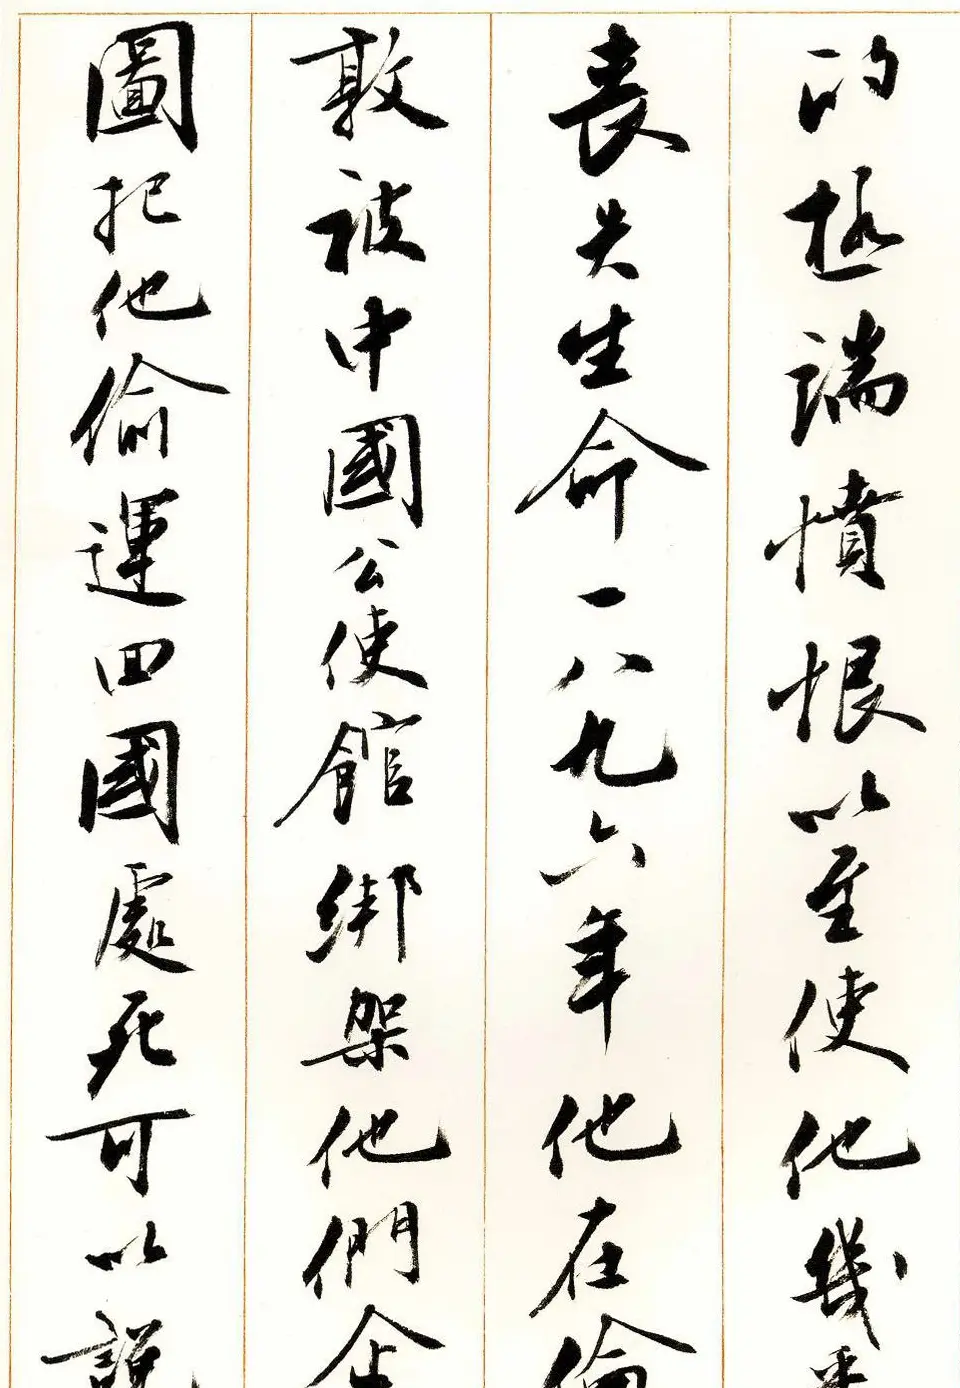 的極端憤恨以至使他幾乎
喪失生命一八九六年他在倫
敦被中國公使館綁架他們企
圖把他偷運回國處死可以説